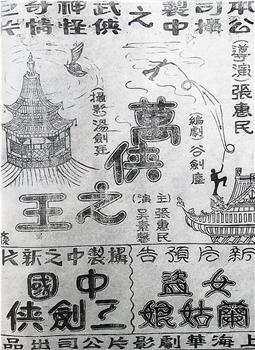 本公司攝製中之武俠神怪奇情巨片
(導演)張惠民
編劇 谷劍塵
萬俠之王
主演 張惠民 吳素馨
(攝影)湯劍廷
新片預告
女盜
蘭姑娘
攝製中之新片
中國
劍俠
上海華劇影片公司出品